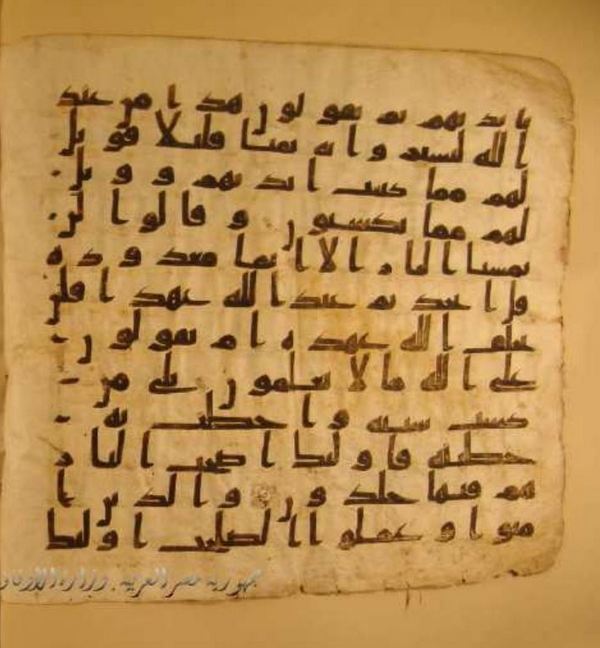 بايديهم ثم يقولون هذا من عند
الله ليشتروا به ثمنا قليلا فويل
لهم مما كتبت ايديهم وويل
لهم مما يكسبون وقالوا لن
تمسنا النار الا اياما معدوده
قل اتخذتم عند الله عهدا فلن
يخلف الله عهده ام تقولون
على الله ما لا تعلمون بلى من
كسب سيئه واحطت به
خطيته فاولئك اصحب النار
هم فيها خلدون والذين ا
منوا وعملوا الصلحت اولئك
جمهورية مصر العربية . وزارة الأوقاف